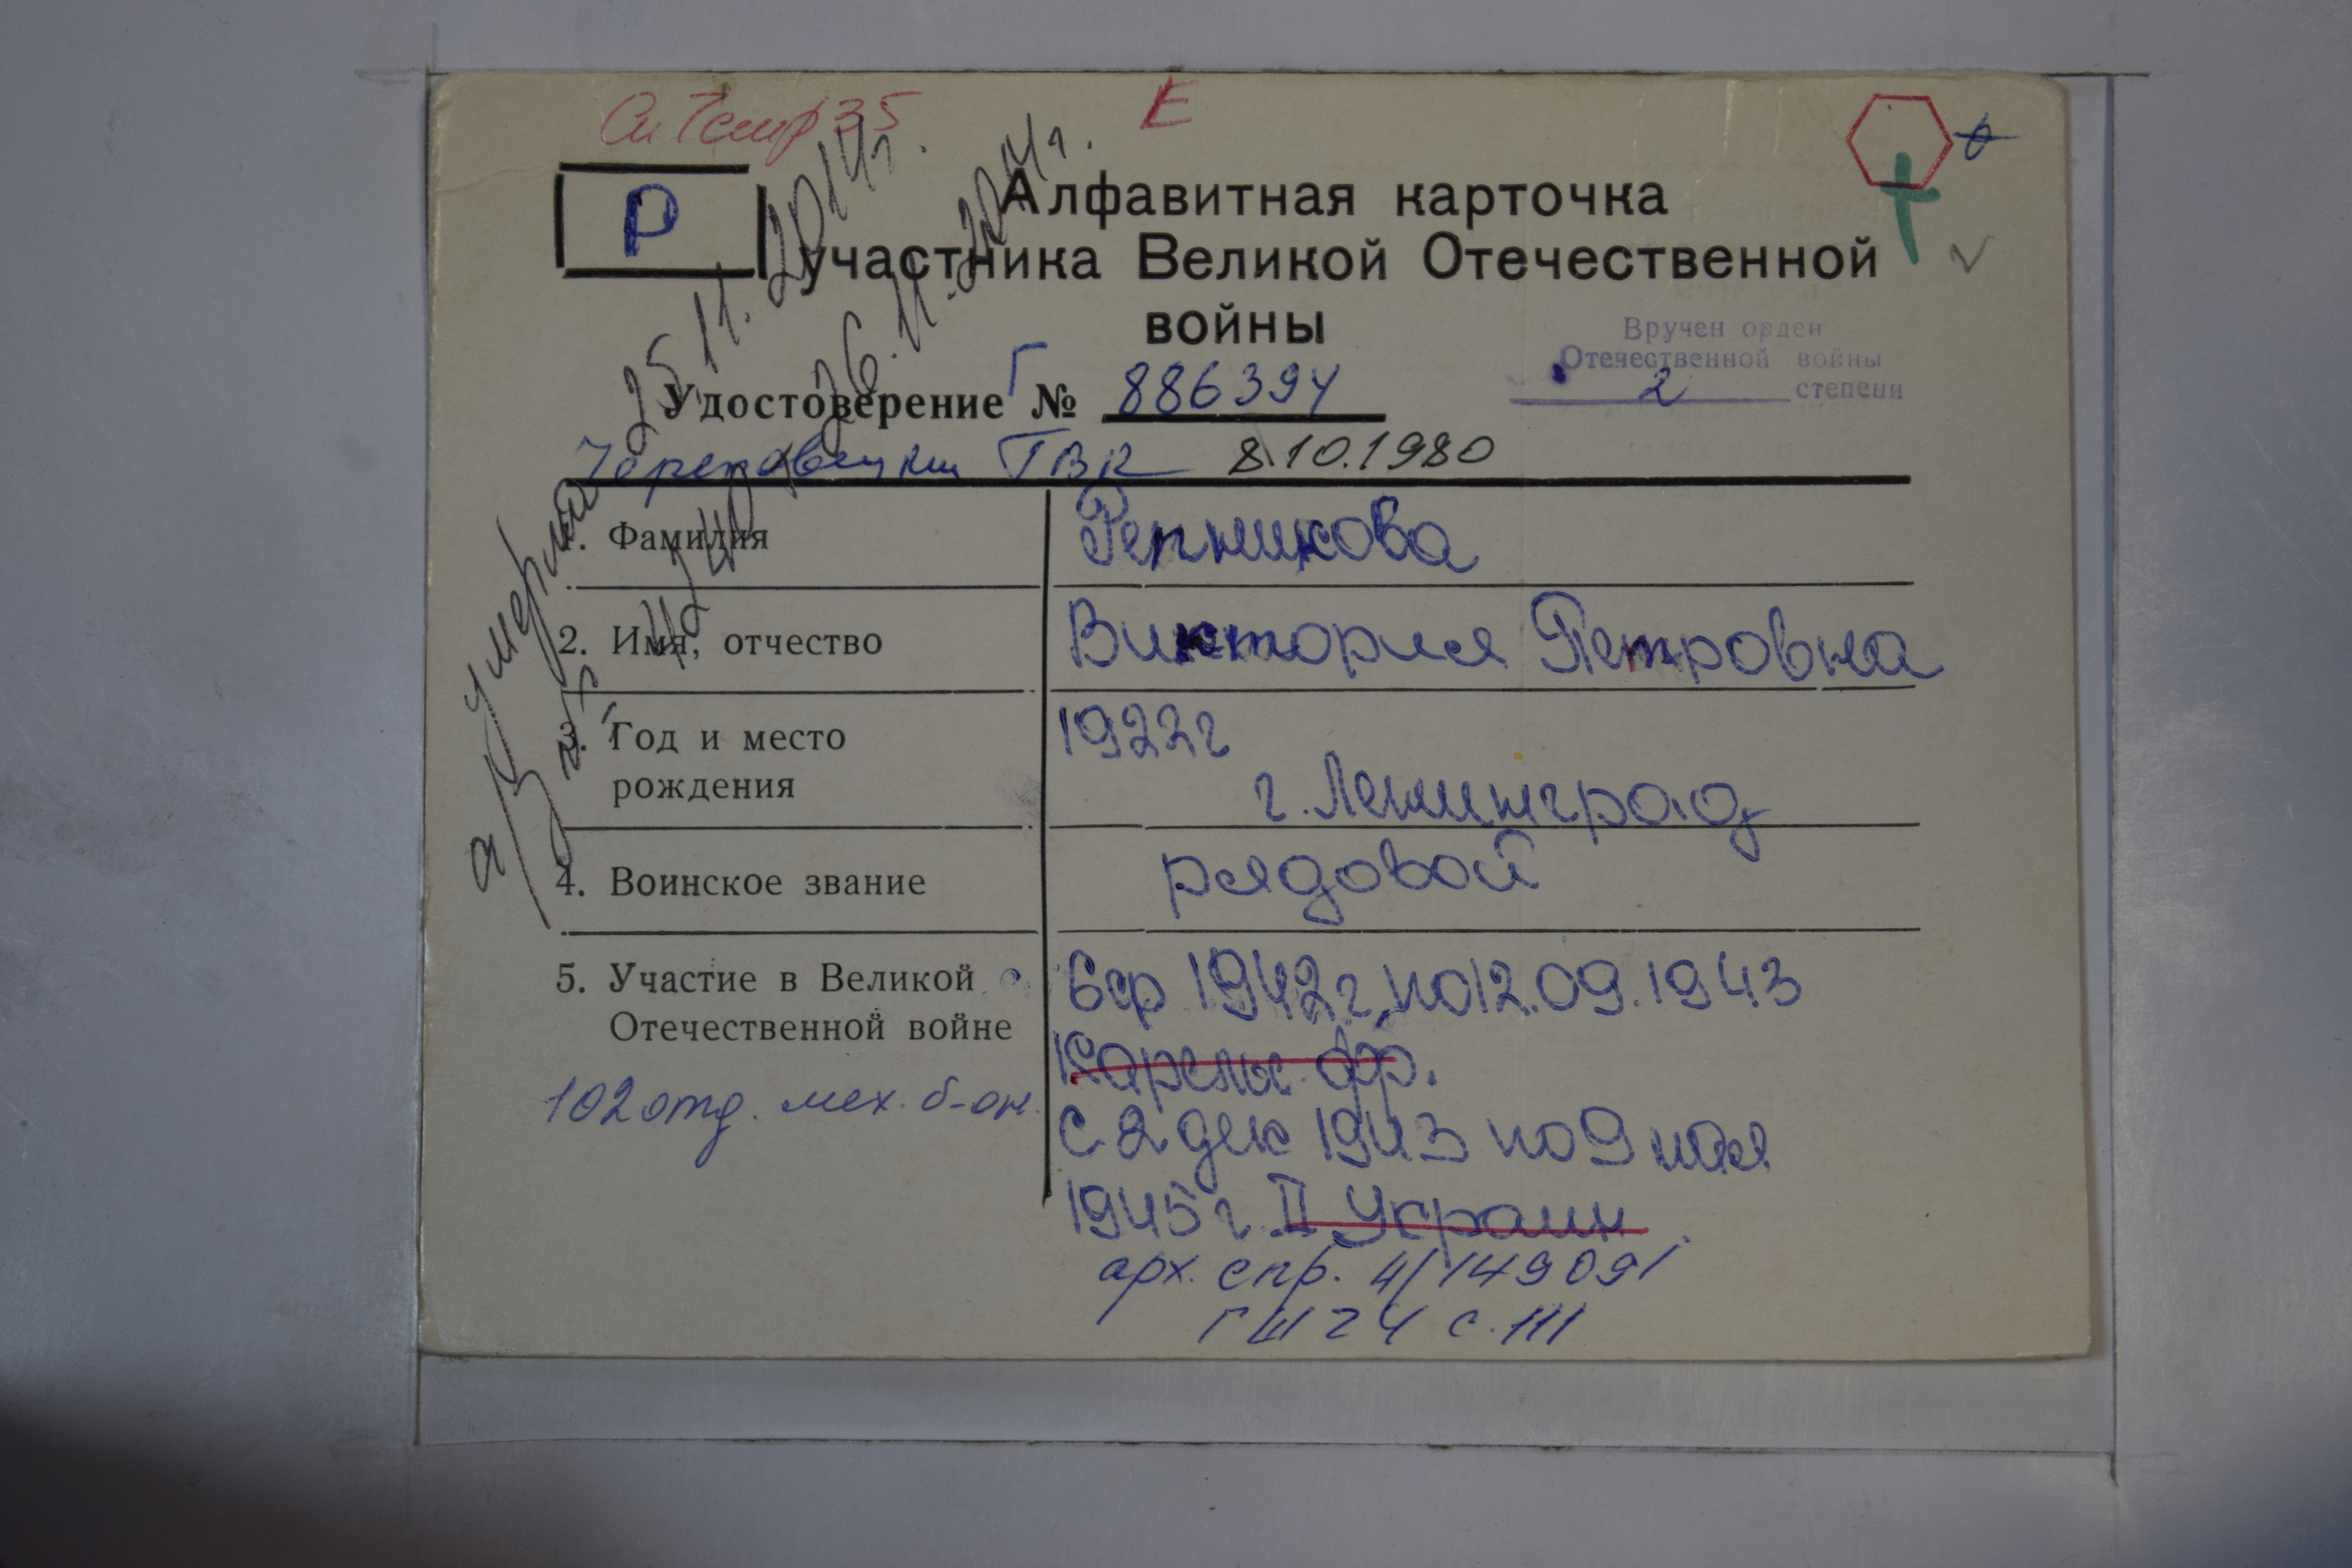 Е
Р
Алфавитная карточка
участника Великой Отечественной
войны
Вручен орден
Отечественной войны
2 степени
Удостоверение Г № 886394
Череповецким ГВК 8.10.1980
умерла 25.11.2014г.
26.11.2014г.
1. Фамилия
Репникова
2. Имя, отчество
Виктория Петровна
3. Год и место
рождения
1922г
г. Ленинград
4. Воинское звание
рядовой
5. Участие в Великой
Отечественной войне
с 6 ф 1942г. по 12.09.1943
Карельс. фр.
102 отд. мех. б-он.
С 2 дек 1943 по 9 мая
1945г. II Украин.
арх. спр. 4/149091
ГШ 24 с. 111